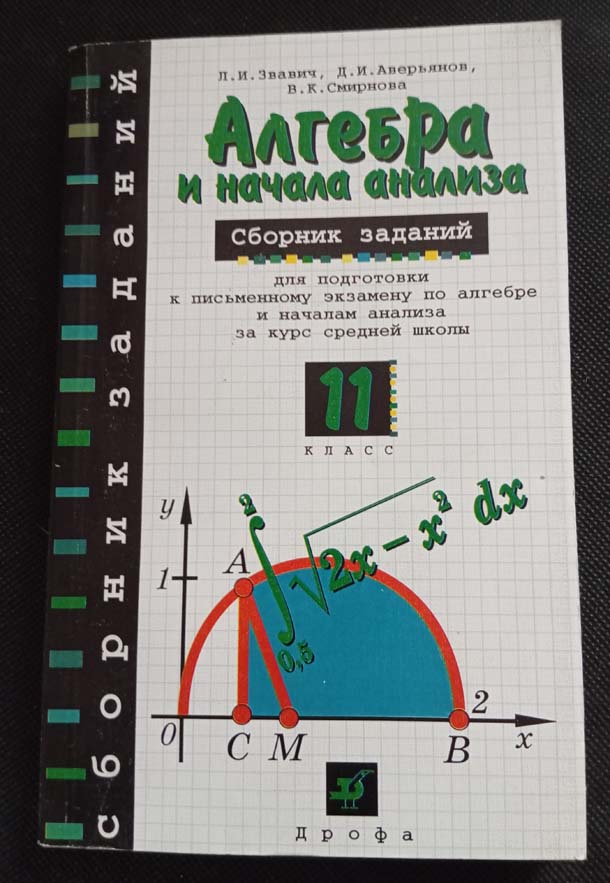 Л.И.Звавич, Д.И.Аверьянов,
В.К.Смирнова
Алгебра
и начала анализа
Сборник заданий
для подготовки
к письменному экзамену по алгебре
и началам анализа
за курс средней школы
11
КЛАСС
2
∫ √2x − x² dx
0,5
y
1
A
0
C
M
B
2
x
Дрофа
сборник заданий